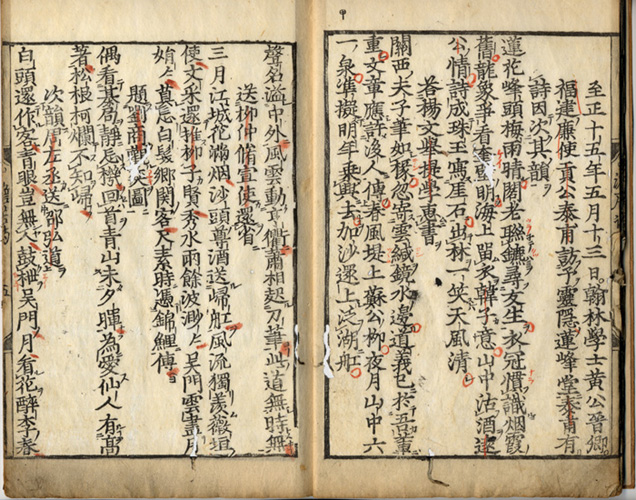 至正十五年五月十三日翰林學士黃公晉卿
福建廉使貢公泰甫訪予靈隱蓮峰堂泰甫有
詩因次其韻
蓮花峰頭梅雨晴閣老聯鑣尋友生衣冠慣識烟霞
舊龍象爭看動明海上留衣韓子意山中沽酒遠
公情詩成珠玉寫崖石出林一笑天風清
答楊文舉提學惠書
關西夫子筆如椽忽寄雲緘鏡水邊道義已於吾黨
重文章應許後人傳春風堤上蘇公柳夜月山中六
一泉準擬明年乘興去加沙還上泛湖船
聲名溢中外風雲動亨衢肅相趨刀筆此道無時無
送柳仲脩宣使還省
三月江城花滿烟沙頭尊酒送歸舡風流獨羨薇垣
使文采還推柳子賢秀水雨餘波渺渺吳門雲盡月
娟娟莫忘白髮鄉關客尺素時憑錦鯉傳
題劉商觀奕圖
偶看棊局靜忘巒回首青山未夕曛為愛仙人有高
著松根柯爛不知歸
次韻周左丞送邵弘道
白頭還作客青眼豈無人鼓枻吳門月看花醉李春